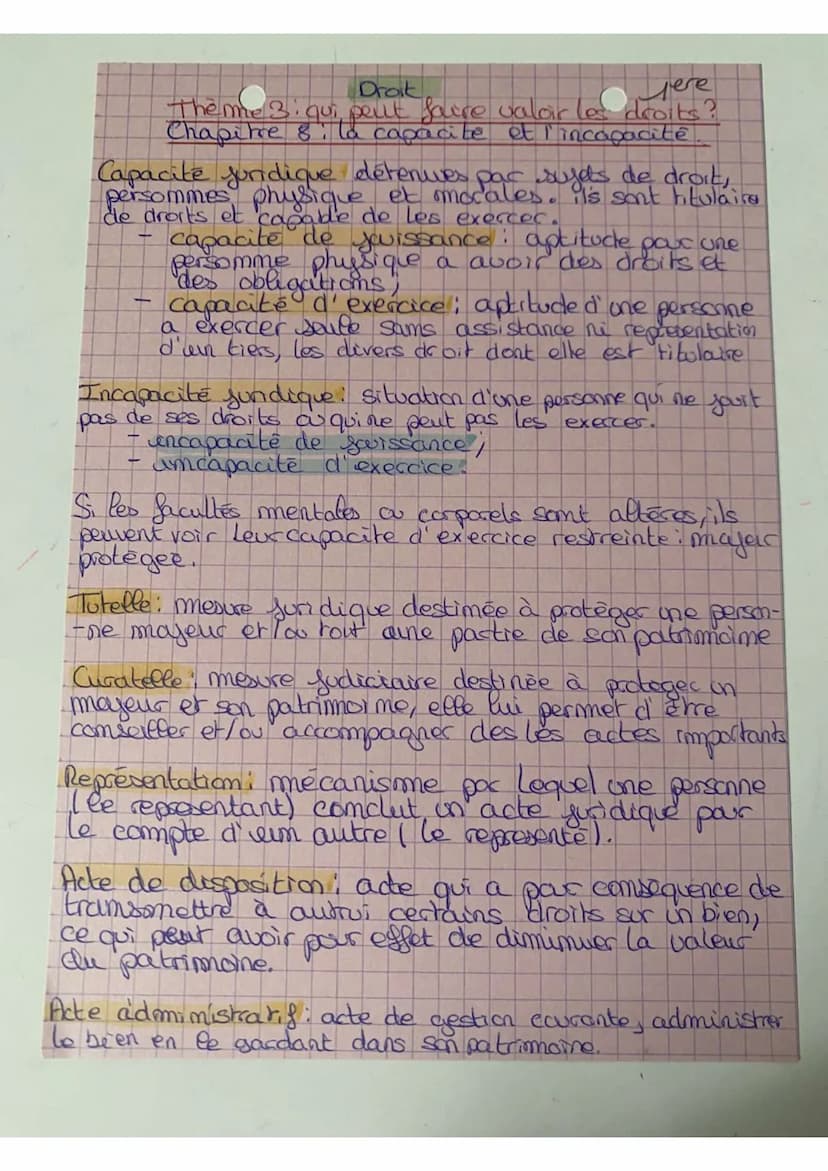 Droit
1ere
Thème 3 : qui peut faire valoir les droits ?
Chapitre 8 : la capacité et l'incapacité.
Capacité juridique détenues par sujets de droit,
personnes physique et morales. ils sont titulaire
de droits et capable de les exercer.
- capacité de jouissance : aptitude par une
personne physique a avoir des droits et
des obligations ;
- capacité d'exercice : aptitude d'une personne
a exercer seule sans assistance ni representation
d'un tiers, les divers droit dont elle est titulaire
Incapacité juridique : situation d'une personne qui ne jouit
pas de ses droits ou qui ne peut pas les exercer.
- incapacité de jouissance ;
- incapacité d'exercice.
Si les facultés mentales ou corporels sont altéres, ils
peuvent voir leur capacite d'exercice restreinte : majeur
protégée.
Tutelle : mesure juridique destinée à protèger une person-
-ne majeur et/ou tout oune partie de son patrimoime
Curatelle : mesure judiciaire destinée à proteger un
majeur et son patrimoime, elle lui permet d'être
conseiller et/ou accompagner des les actes importants
Représentation : mécanisme par lequel une personne
(le representant) conclut un acte juridique pour
le compte d'un autre (le representé).
Acte de disposition : acte qui a par consequence de
transmettre à autrui certains droits sur un bien,
ce qui peut avoir pour effet de diminuer la valeur
du patrimoine.
Acte administratif : acte de gestion courante, administrer
le bien en le gardant dans son patrimoine.